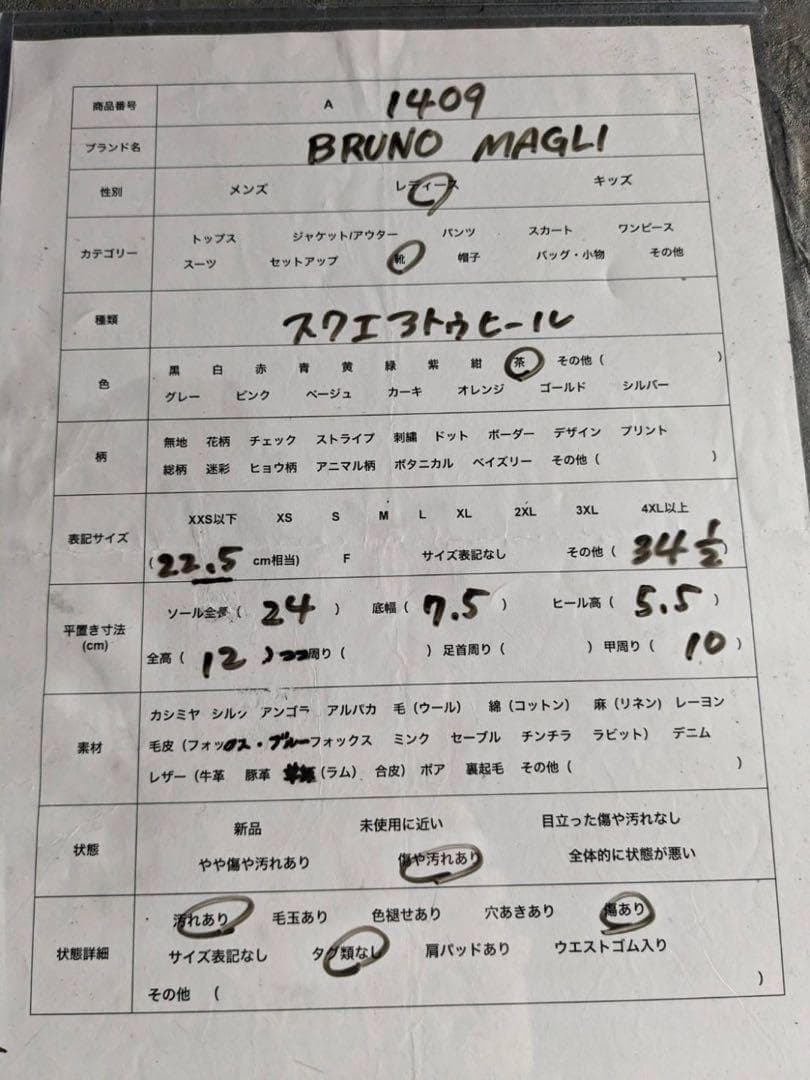 商品番号 A 1409
ブランド名 BRUNO MAGLI
性別 メンズ レディース キッズ
カテゴリー
トップス ジャケット/アウター パンツ スカート ワンピース
スーツ セットアップ 靴 帽子 バッグ・小物 その他
種類 スクエアトゥヒール
色
黒 白 赤 青 黄 緑 紫 紺 茶 その他 ( )
グレー ピンク ベージュ カーキ オレンジ ゴールド シルバー
柄
無地 花柄 チェック ストライプ 刺繍 ドット ボーダー デザイン プリント
総柄 迷彩 ヒョウ柄 アニマル柄 ボタニカル ペイズリー その他 ( )
表記サイズ
XXS以下 XS S M L XL 2XL 3XL 4XL以上
(22.5 cm相当) F サイズ表記なし その他 ( 34 1/2 )
平置き寸法
(cm)
ソール全長 ( 24 ) 底幅 ( 7.5 ) ヒール高 ( 5.5 )
全高 ( 12 ) 周り ( ) 足首周り ( ) 甲周り ( 10 )
素材
カシミヤ シルク アンゴラ アルパカ 毛 (ウール) 綿 (コットン) 麻 (リネン) レーヨン
毛皮 (フォックス・ブルーフォックス ミンク セーブル チンチラ ラビット) デニム
レザー (牛革 豚革 (ラム) 合皮) ボア 裏起毛 その他 ( )
状態
新品 未使用に近い 目立った傷や汚れなし
やや傷や汚れあり 傷や汚れあり 全体的に状態が悪い
状態詳細
汚れあり 毛玉あり 色褪せあり 穴あきあり 傷あり
サイズ表記なし タグ類なし 肩パッドあり ウエストゴム入り
その他 ( )